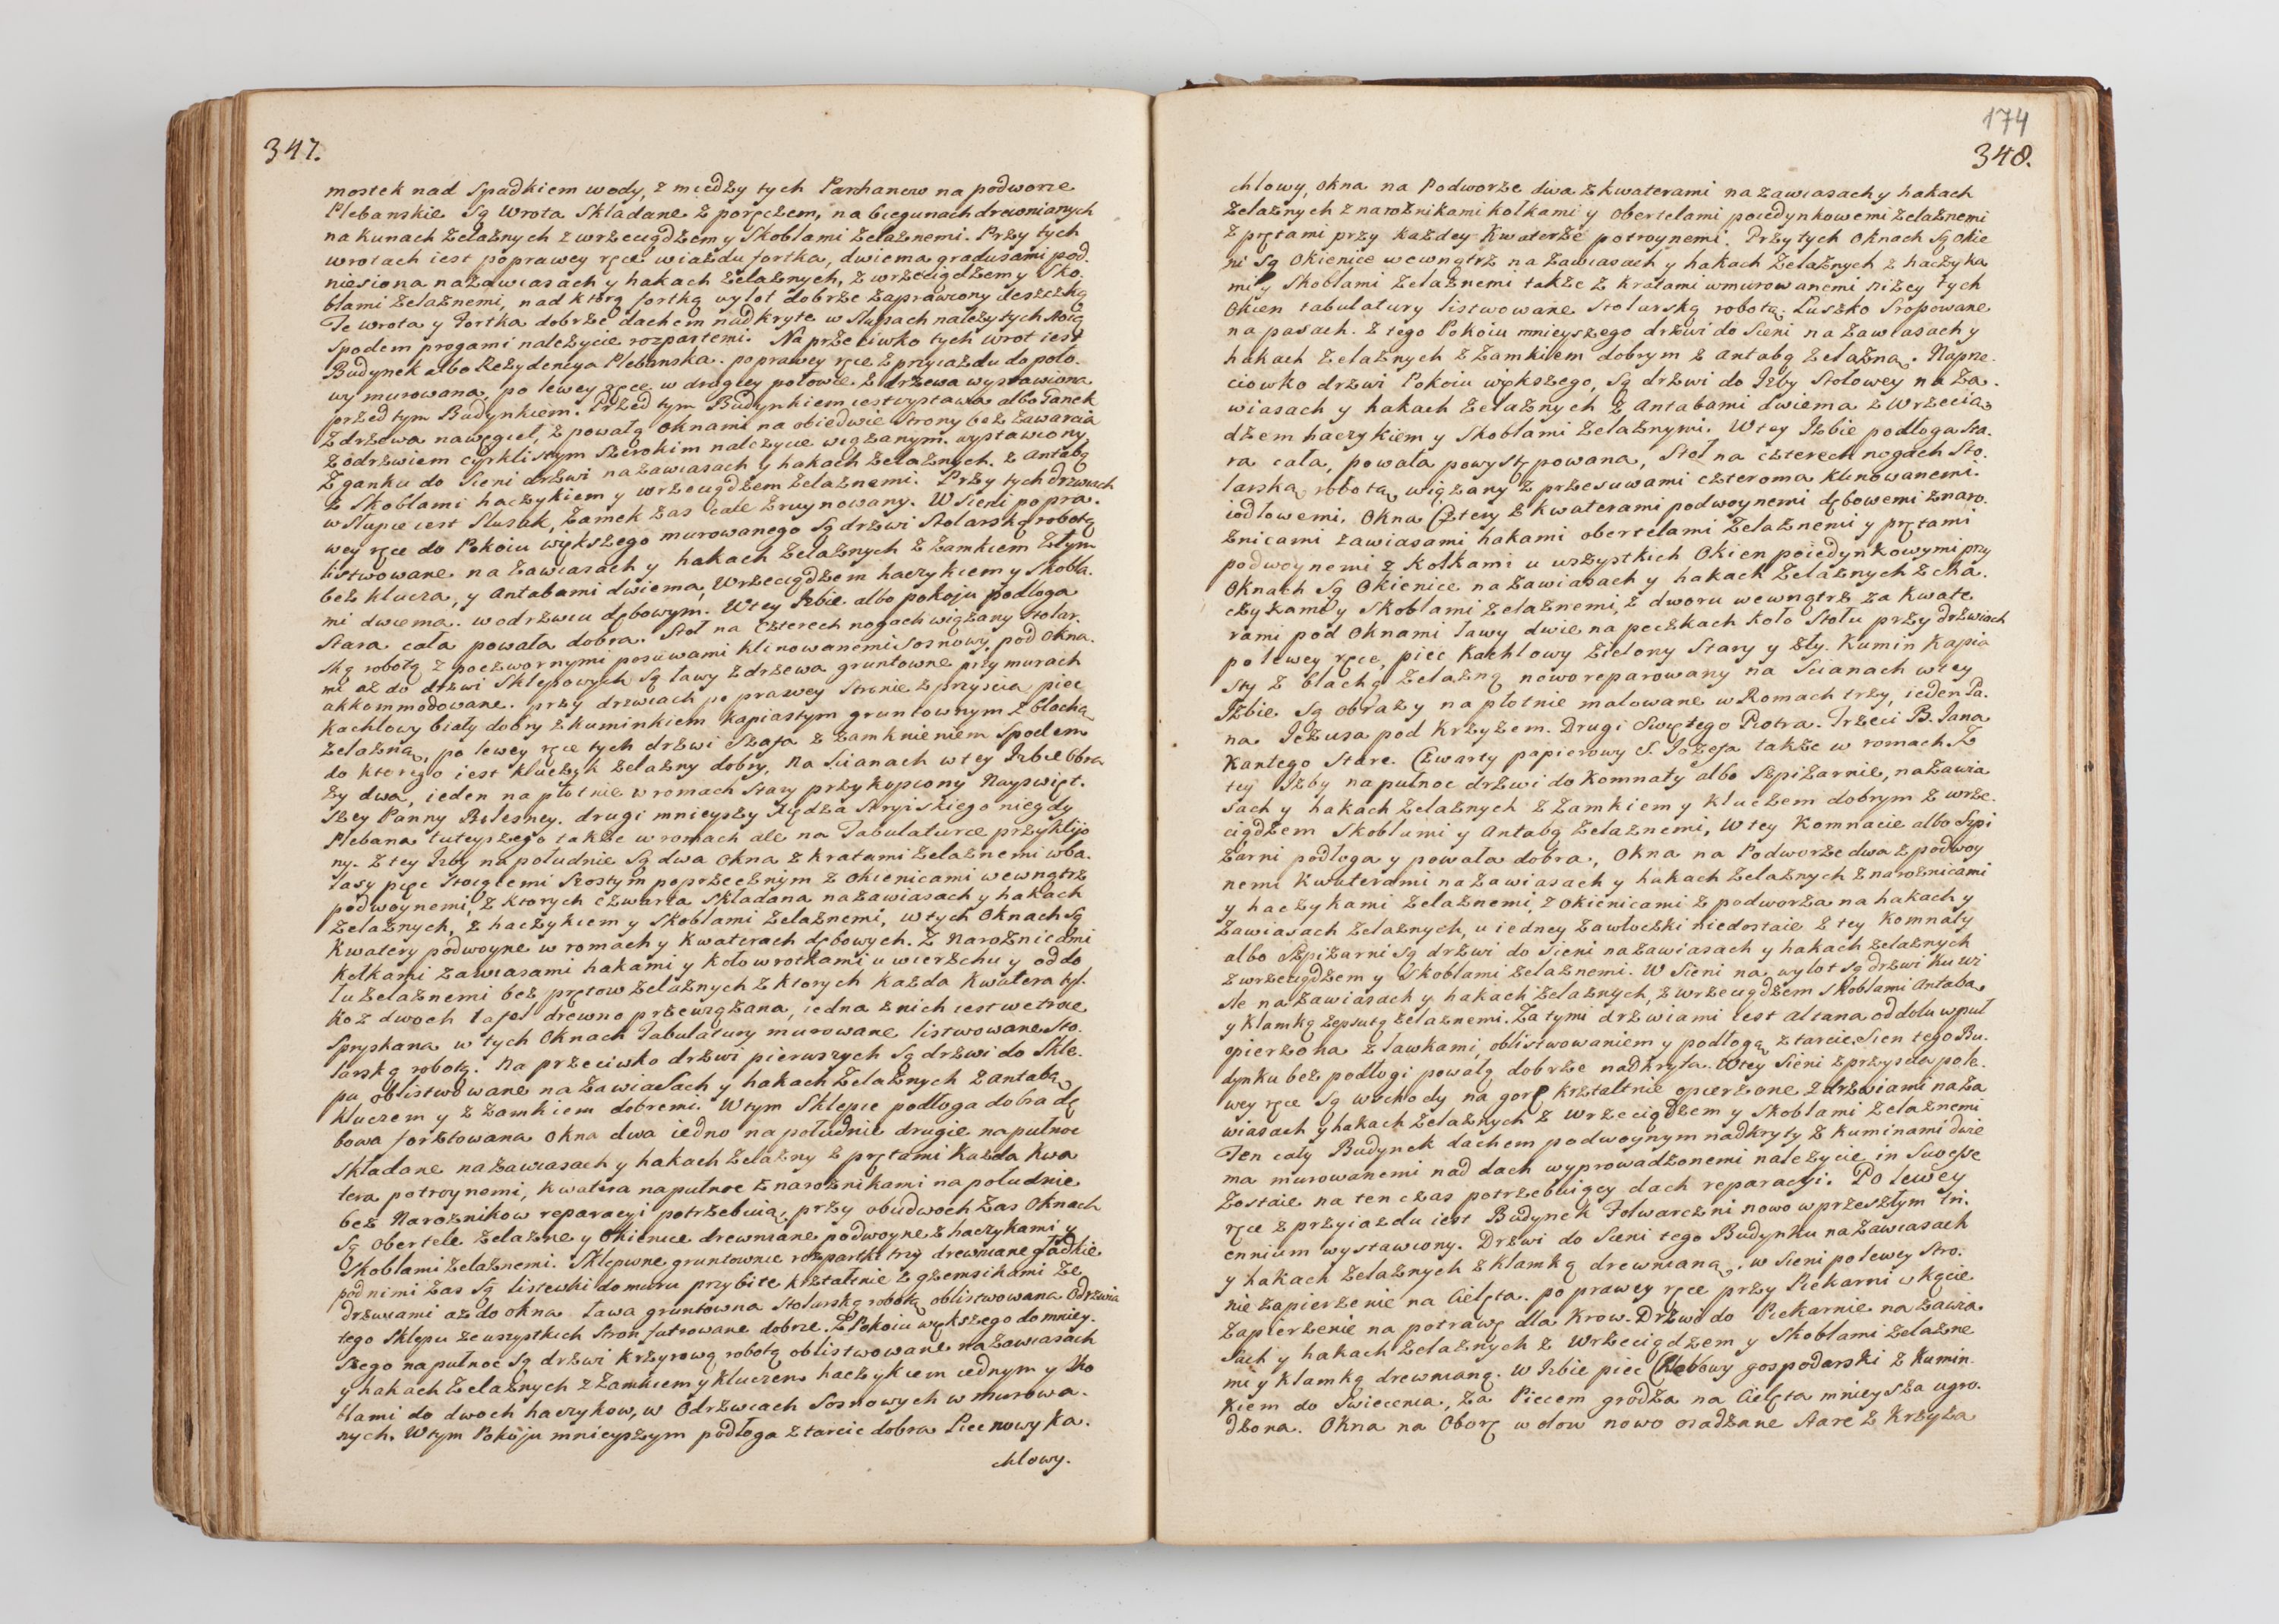 347.
mostek nad Spadkiem wody, z miedzy tych Parchanow na podworze
Plebanskie Są Wrota Skladane z poręczem, na biegunach drewnianych
na Kunach Zelaznych z wrzeciądzem y Skoblami Zelaznemi. Przy tych
wrotach iest po prawey ręce wiazdu fortka, dwiema gradusami pod.
niesiona na zawiasach y hakach Zelaznych, z wrzeciądzem y Sko.
blami Zelaznemi, nad ktorą fortką wylot dobrze zaprawiony deszczką
Te wrota y Fortka dobrze dachem nadkryte w Slupach nalezytych stoią
Spodem progami nalezycie rozpartemi. Na przeciwko tych wrot iest
Budynek albo Rezydencya Plebanska. po prawey ręce z przyiazdu do polo.
wy murowana, po lewey ręce w drugiey połowie z drzewa wystawiona
przed tym Budynkiem. Przed tym Budynkiem iest wystawa albo Ganek
z drzewa na węgieł, z powałą oknami na obiedwie Strony bez zawarcia
z odrzwiem cyrklistym Szerokim nalezycie wiązanym. wystawiony
Z ganku do Sieni drzwi na zawiasach y hakach Zelaznych. z Antabą
z Skoblami haczykiem y wrzeciądzem Zelaznemi. Przy tych drzwiach
w Slupie iest Slusak, Zamek zas cale zruynowany. W Sieni po pra.
wey ręce do Pokoiu większego murowanego Są drzwi Stolarską robotą
listwowane na Zawiasach y hakach Zelaznych z Zamkiem Złym
bez klucza, y Antabami dwiema, Wrzeciądzem haczykiem y Skobla.
mi dwiema. w odrzwiu dębowym. W tey Izbie albo pokoju podłoga
Stara cała powała dobra. Stoł na Czterech nogach wiązany Stolar.
ską robotą z poczwornymi posuwami klinowanemi Sosnowy. pod Okna.
mi az do drzwi Sklepowych Są ławy z drzewa gruntowne przy murach
akkommodowane. przy drzwiach po prawey Stronie z przyscia piec
Kachlowy biały dobry z kuminkiem Kapiastym gruntownym z blachą
Zelazną, po lewey ręce tych drzwi Szafa z zamknieniem Spodem
do ktorego iest kluczyk Zelazny dobry, Na Scianach w tey Izbie Obra
zy dwa, ieden na płotnie w romach Stary przykopcony Nayswięt.
szey Panny Bolesney. drugi mnieyszy Xiędza Stryiskiego niegdy
Plebana tuteyszego także w romach ale na Tabulaturce przyklijo
ny. Z tey Izby na południe Są dwa okna z kratami Zelaznemi w ba.
lasy pięc Stoiącemi Szostym poprzecznym z okienicami wewnątrz
podwoynemi, z ktorych czwarta Składana na zawiasach y hakach
Zelaznych, z haczykiem y Skoblami Zelaznemi, w tych Oknach Są
Kwatery podwoyne w romach y kwaterach dębowych. Z Naroznicami
Kołkami zawiasami hakami y kołowrotkami u wierzchu y od do
łu zelaznemi bez prętow zelaznych z ktorych każda Kwatera tyl.
ko z dwoch tafel drewno przewiązana, iedna z nich iest we troie
Spryskana w tych Oknach Tabulatury murowane listwowane Sto.
larską robotą. Na przeciwko drzwi pierwszych Są drzwi do Skle.
pu oblistwowane na Zawiasach y hakach Zelaznych z antabą
kluczem y z zamkiem dobremi. W tym Sklepie podłoga dobra dę
bowa forsztowana okna dwa iedno na południe drugie na pułnoc
Składane na zawiasach y hakach Zelazny z prętami każda Kwa
tera potroynemi, kwatera na pułnoc z naroznikami na południe
bez Naroznikow reparacyi potrzebuią, przy obudwoch zas Oknach
Są Obertele zelazne y Okienice drewniane podwoyne z haczykami y
Skoblami Zelaznemi. Sklepienie gruntownie rozpartki trzy drewniane gładkie
pod nimi zas Są listewki do muru przybite kształnie z gzemsikami Ze
drzwiami az do okna ława gruntowna Stolarską robotą oblistwowana Odrzwia
tego Sklepu ze wszystkich Stron futrowane dobrze. Z Pokoiu większego do mniey.
szego na pułnoc Są drzwi krzyzową robotą oblistwowane na zawiasach
y hakach Zelaznych z zamkiem y kluczem haczykiem iednym y Sko
blami do dwoch haczykow, w Odrzwiach Sosnowych w murowa.
nych. W tym Pokoju mnieyszym podłoga z tarcic dobra Piec nowy Ka.
chlowy.
174
348.
chlowy, okna na Podworze dwa z kwaterami na zawiasach y hakach
Zelaznych z naroznikami kołkami y Obertelami poiedynkowemi zelaznemi
z prętami przy każdey Kwaterze potroynemi. Przy tych oknach Są Okie
ni Są Okienice wewnątrz na Zawiasach y hakach Zelaznych z haczyka
mi y Skoblami Zelaznemi także z kratami wmurowanemi nizey tych
Okien tabulatury listwowane Stolarską robotą. Luszko Sropowane
na pasach. z tego Pokoiu mnieyszego drzwi do Sieni na Zawiasach y
hakach Zelaznych z Zamkiem dobrym z antabą zelazną. Naprze.
ciowko drzwi Pokoiu większego, są drzwi do Izby Stołowey na Za.
wiasach y hakach Zelaznych z Antabami dwiema z Wrzecią
dzem haczykiem y Skoblami Zelaznymi. W tey Izbie podłoga Sta.
ra cała, powała powystępowana, Stoł na czterech nogach Sto.
larską robotą wiązany z przesuwami czteroma klinowanemi.
iodłowemi. Okna Cztery z kwaterami podwoynemi dębowemi z naro.
znicami zawiasami hakami obertelami Zelaznemi y prętami
podwoynemi z kołkami u wszystkich Okien poiedynkowymi przy
Oknach Są Okienice na zawiasach y hakach Zelaznych z cha.
czykami y Skoblami zelaznemi, z dworu wewnątrz za kwate
rami pod Oknami ławy dwie na peczkach koło Stołu przy drzwiach
po lewey ręce, piec Kachlowy zielony Stary y zły. Kumin Kapia
sty z blachą żelazną nowo reparowany na Scianach w tey
Izbie Są obrazy na płotnie malowane w Romach trzy, ieden Pa.
na Jezusa pod Krzyzem. Drugi Swiętego Piotra. Trzeci B. Jana
Kantego Stare. Czwarty papierowy S. Jozefa także w romach. Z
tey Izby na pułnoc drzwi do Komnaty albo Szpiżarnie, na Zawia
sach y hakach Zelaznych z Zamkiem y kluczem dobrym z wrze.
ciądzem Skoblami y Antabą Zelaznemi, W tey Komnacie albo Szpi
żarni podłoga y powała dobra, Okna na Podworze dwa z podwoy
nemi Kwaterami na zawiasach y hakach Zelaznych z naroznicami
y haczykami Zelaznemi, z okienicami z podworza na hakach y
Zawiasach Zelaznych, u iedney Zawłoczki niedostaie z tey Komnaty
albo Szpiżarni Są drzwi do Sieni na zawiasach y hakach zelaznych
z wrzeciądzem y Skoblami Zelaznemi. W Sieni na wylot są drzwi ku Wi
śle na zawiasach y hakach Zelaznych, z wrzeciądzem Skoblami Antabą
y klamką zepsutą zelaznemi. Za tymi drzwiami iest altana od dołu w puł
opierzona z ławkami, oblistwowaniem y podłogą z tarcic. Sien tego Bu.
dynku bez podłogi powałą dobrze nadkryta. W tey Sieni z przyscia po le.
wey ręce Są wschody na gorę kształtnie opierzone z drzwiami na za
wiasach y hakach Zelaznych z wrzeciądzem y Skoblami Zelaznemi
Ten cały Budynek dachem podwoynym nadkryty z Kuminami dwie
ma murowanemi nad dach wyprowadzonemi nalezycie in Suo esse
Zostaie na ten czas potrzebuiący dach reparacyi. Po lewey
ręce z przyiazdu iest Budynek Folwarczni nowo w przeszłym Tri.
ennium wystawiony. Drzwi do Sieni tego Budynku na Zawiasach
y hakach Zelaznych z klamką drewnianą. w Sieni po lewey Stro.
nie zapierzenie na Cielęta. po prawey ręce przy Piekarni w kącie
Zapierzenie na potrawę dla Krow. Drzwi do Piekarnie na zawia.
sach y hakach Zelaznych z Wrzeciądzem y Skoblami Zelazne
mi y klamką drewnianą. W Izbie piec Chlebowy gospodarski z Kumin
kiem do Swiecenia, za Piecem grodza na Cielęta mnieysza ugro.
dzona. Okna na Oborę w ołow nowo osadzane Stare z Krzyza